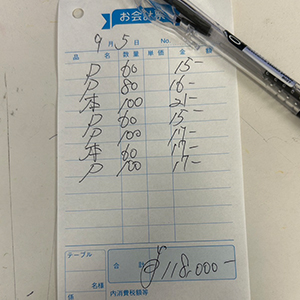 お会計票
9月5日 No.
品名 数量 単価 金額
P 60 15-
P 80 16-
本 100 21-
P 60 15-
P 100 17-
本 60 17-
P 100 17-
テーブル
名様
係
合計 ¥118,000-
内消費税額等